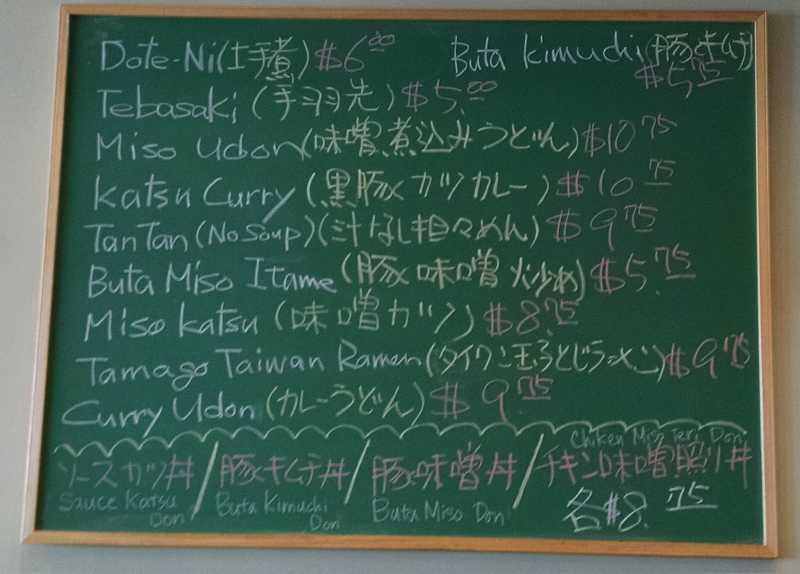 Dote-Ni(土手煮) $6.00 Buta Kimuchi(豚キムチ)
$5.75
Tebasaki (手羽先) $5.00
Miso Udon(味噌煮込みうどん) $10.75
Katsu Curry (黒豚カツカレー) $10.75
TanTan (No Soup)(汁なし担々めん) $9.75
Buta Miso Itame (豚味噌炒め) $5.75
Miso Katsu (味噌カツ) $8.75
Tamago Taiwan Ramen(タイワン玉子とじラーメン) $9.75
Curry Udon (カレーうどん) $9.75
Chiken Miso Teri Don
ソースカツ丼 / 豚キムチ丼 / 豚味噌丼 / チキン味噌照り丼
Sauce Katsu Don Buta Kimuchi Don Buta Miso Don 各$8.75